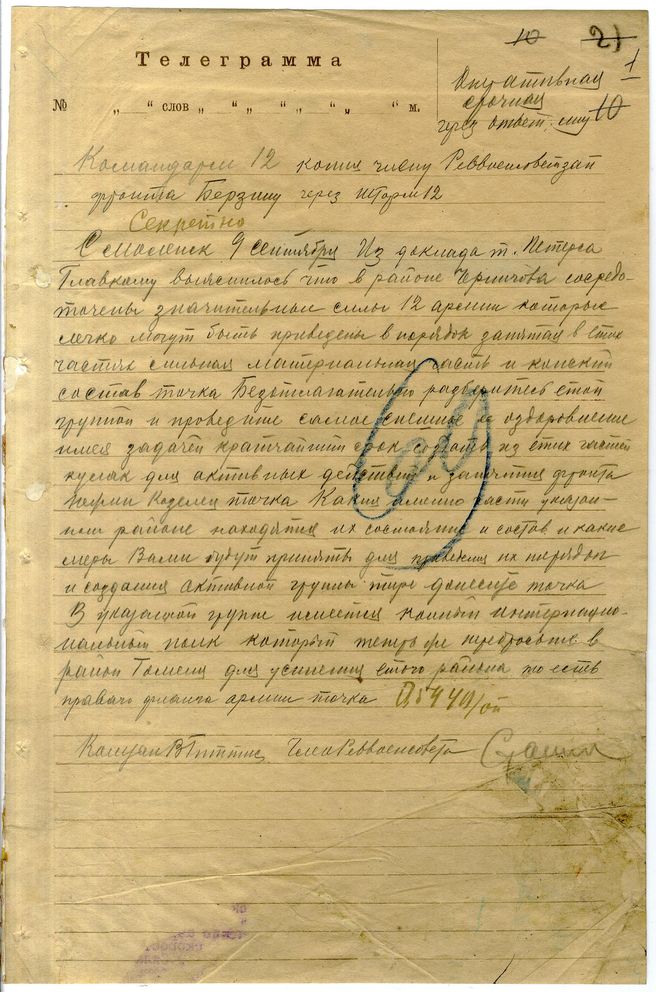 10 21
Телеграмма
1
№ „ “ слов „ “ „ “ „ “ „ “ м.
Оперативная
срочная
через ответ. лицу 10
Командарм 12 копия члену Реввоенсовета зап
фронта Берзину через штарм 12
Секретно
Смоленск 9 сентября Из доклада т. Петерса
Главкому выяснилось что в районе Чернигова сосредо-
точены значительные силы 12 армии которые
легко могут быть приведены в порядок запятая в этих
частях сильная материальная часть и конский
состав точка Безотлагательно разберитесь этой
группой и проведите самое спешное ее оздоровление
имея задачей кратчайший срок создать из этих частей
кулак для активных действий и занятия фронта
Нежин Козелец точка Какие именно части указан-
ном районе находятся их состояние и состав и какие
меры Вами будут приняты для приведения их порядок
и создания активной группы тире донесите точка
В указанной группе имеется конный интернацио-
нальный полк который теперь же перебросьте в
район Гомеля для усиления этого района то есть
правого фланга армии точка 0544/оп
Комзап ВГиттис Член Реввоенсовета Сталин